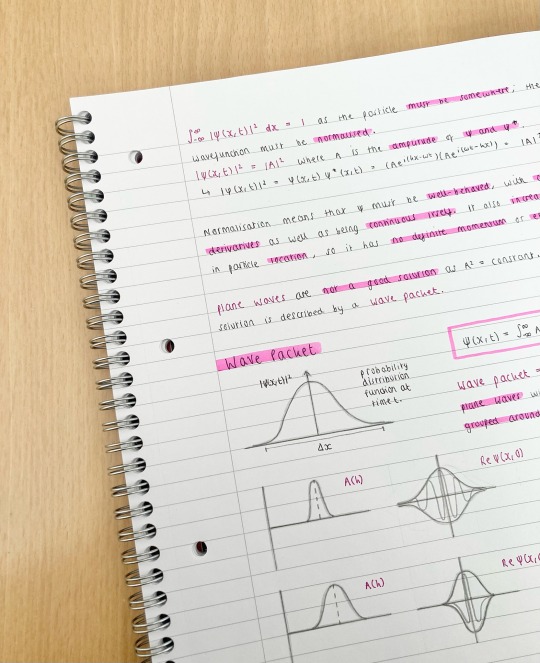 ∫∞-∞ |Ψ(x,t)|² dx = 1 as the particle must be somewhere; the
wavefunction must be normalised.
|Ψ(x,t)|² = |A|² where A is the amplitude of Ψ and Ψ*.
↳ |Ψ(x,t)|² = Ψ(x,t) Ψ*(x,t) = (Ae^i(kx-ωt))(Ae^i(ωt-kx)) = |A|
Normalisation means that Ψ must be well-behaved, with
derivatives as well as being continuous itself. It also increa
in particle location, so it has no definite momentum or
plane waves are not a good solution as A² = constant.
solution is described by a wave packet.
Wave Packet
Ψ(x,t) = ∫∞-∞ A
|Ψ(x,t)|²
probability
distribution
function at
time t.
Δx
wave packet =
plane waves wi
grouped around
A(k)
Re Ψ(x,0)
A(k)
Re Ψ(x,